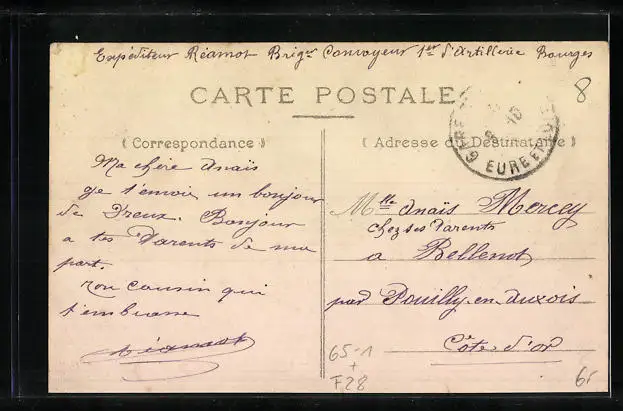 Expéditeur Réamot Brigr Convoyeur 1er d'Artillerie Bourges
8
CARTE POSTALE
GARE EURE
( Correspondance )
( Adresse du Destinataire )
Ma chère Anaïs
Je t'envoie un bonjour
de Dreux. Bonjour
a tes Parents de ma
part.
Ton cousin qui
t'embrasse
Réamot
Mlle Anaïs Mercey
chez ses Parents
a Bellenot
par Pouilly-en-Auxois
Côte-d'Or
65-1
+
F28